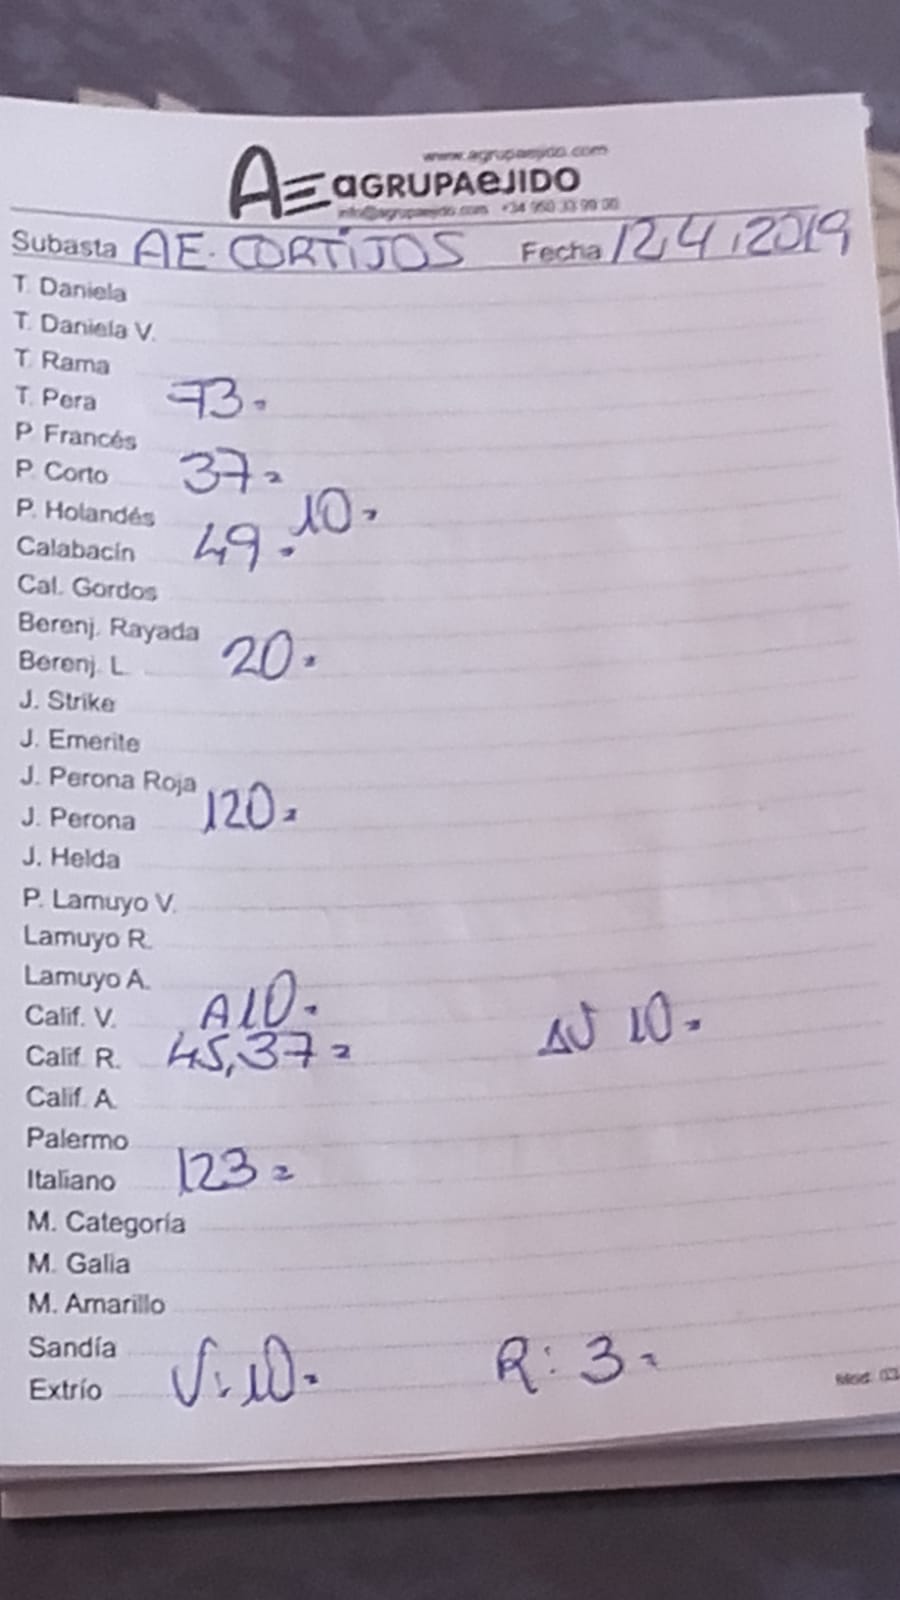 www.agrupaejido.com
AE aGRUPAeJIDO
info@agrupaejido.com +34 950 33 99 00
Subasta AE. CORTIJOS Fecha 12,4,2019
T. Daniela
T. Daniela V.
T. Rama
T. Pera 73=
P. Francés
P. Corto 37=
P. Holandés 10=
Calabacín 49=
Cal. Gordos
Berenj. Rayada
Berenj. L. 20=
J. Strike
J. Emerite
J. Perona Roja
J. Perona 120=
J. Helda
P. Lamuyo V.
Lamuyo R.
Lamuyo A.
Calif. V. A10= 10=
Calif. R. 45,37=
Calif. A.
Palermo
Italiano 123=
M. Categoría
M. Galia
M. Amarillo
Sandía
Extrío V: 10= R: 3=
Mod. 03